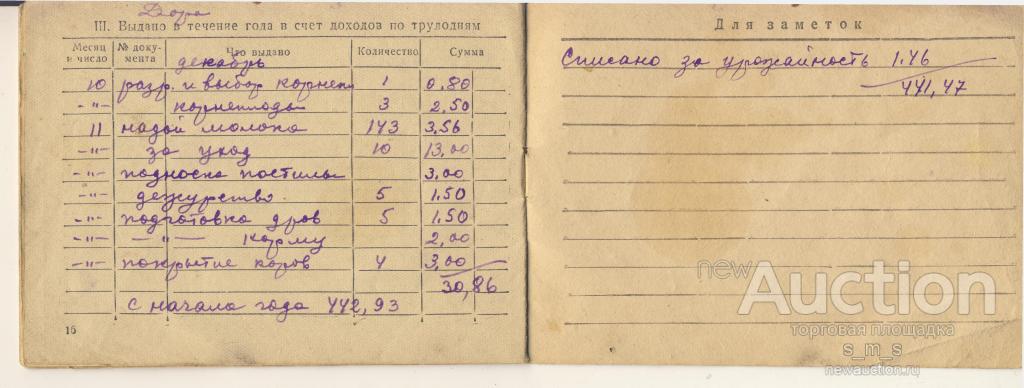 Двора
III. Выдано в течение года в счет доходов по трудодням
Месяц и число № доку-мента Что выдано Количество Сумма
декабрь
10 разр. и выбор корнепл 1 0,80
-"- корнеплоды 3 2,50
11 надой молока 143 3,56
-"- за уход 10 13,00
-"- подноска постилы 3,00
-"- дежурство 5 1.50
-"- подготовка дров 5 1.50
-"- —"— корму 2,00
-"- покрытие коров 4 3,00
30,86
с начала года 442,93
16
Для заметок
Списано за урожайность 1.46
441,47
newAuction
торговая площадка
s_m_s
newauction.ru